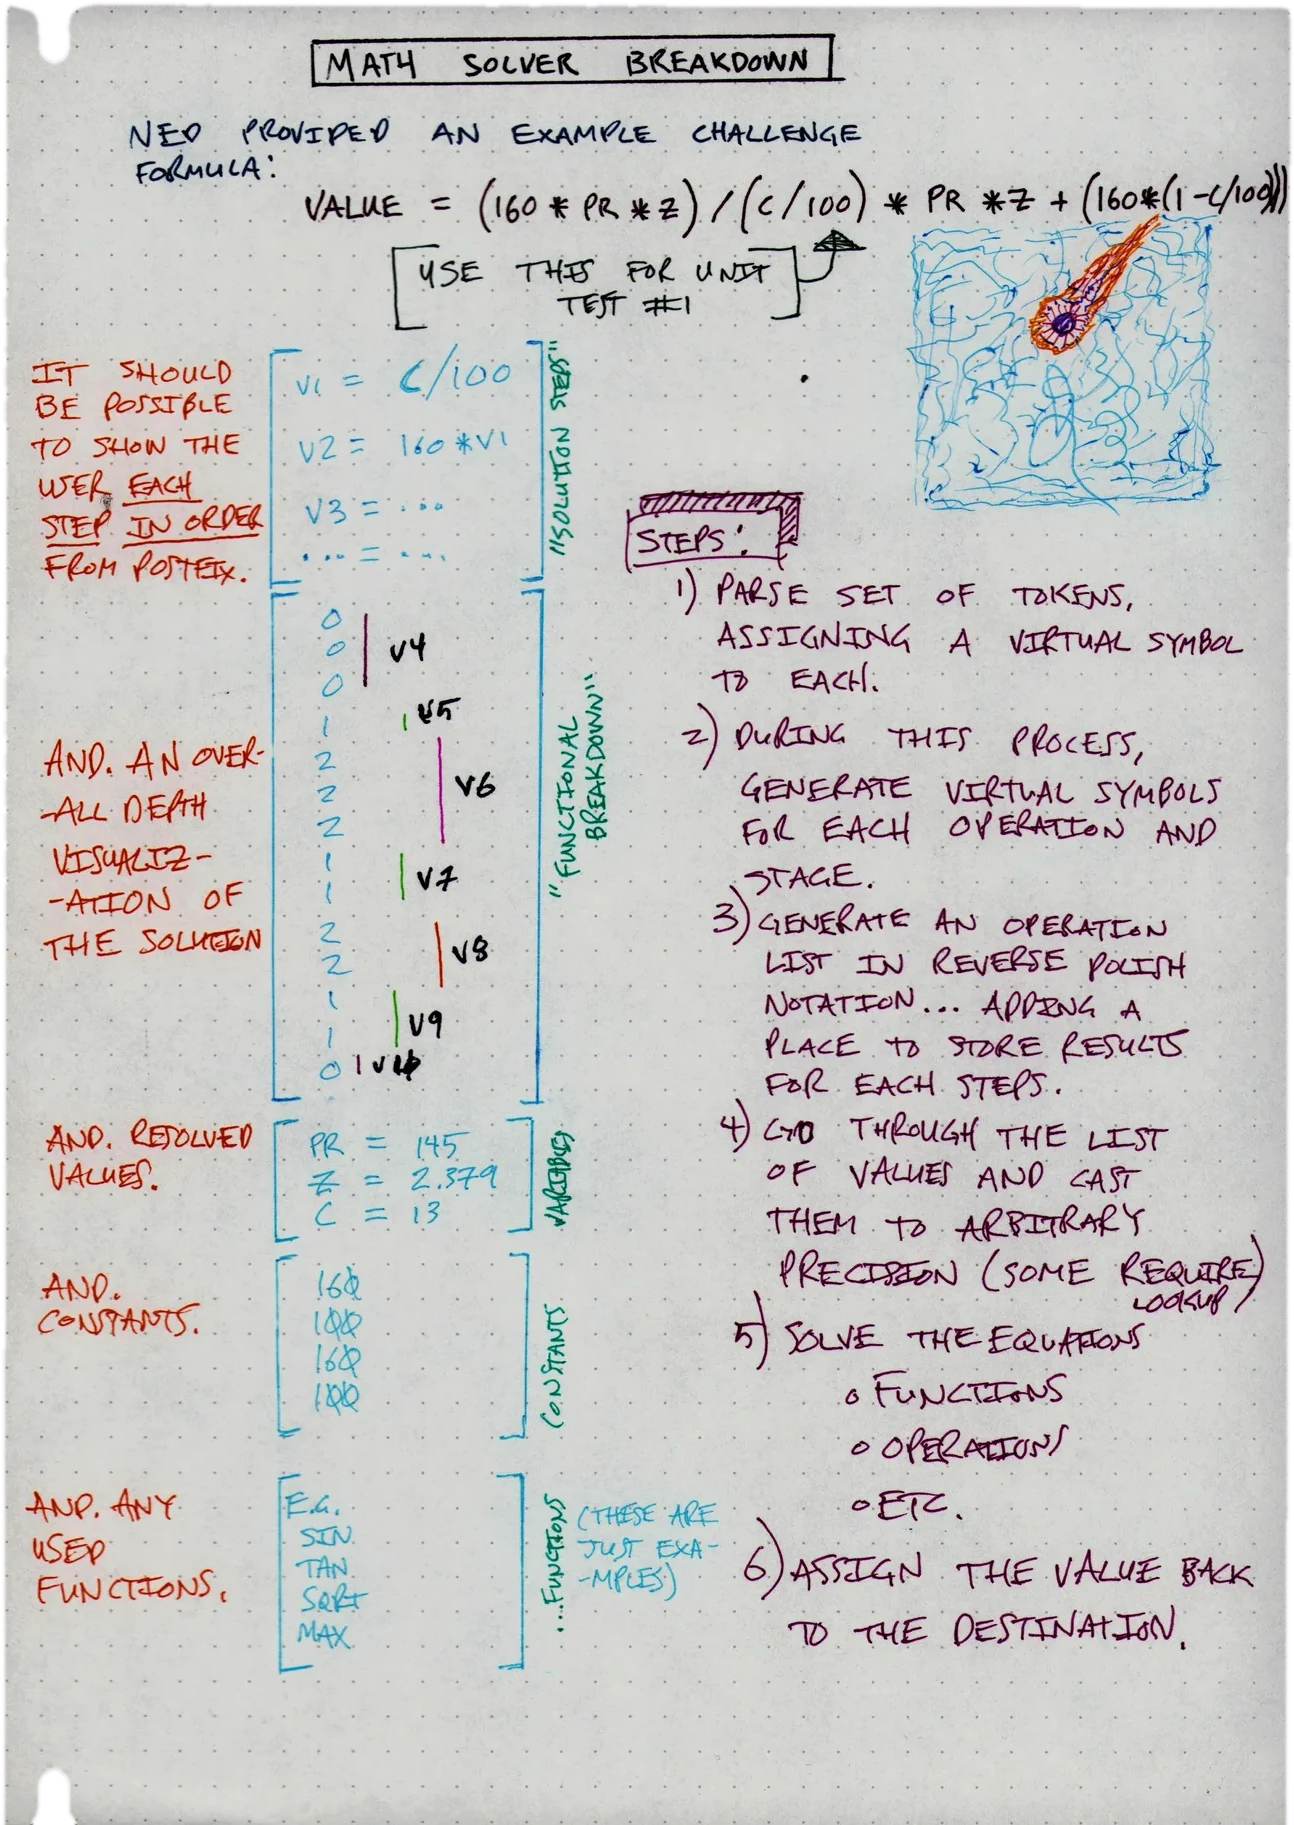 MATH SOLVER BREAKDOWN
NED PROVIDED AN EXAMPLE CHALLENGE
FORMULA:
VALUE = (160 * PR * Z) / (C/100) * PR * Z + (160*(1-C/100)))
USE THIS FOR UNIT
TEST #1
IT SHOULD
BE POSSIBLE
TO SHOW THE
USER EACH
STEP IN ORDER
FROM POSTFIX.
V1 = C/100
V2 = 160 * V1
V3 = ...
... = ...
"SOLUTION STEPS"
AND. AN OVER-
-ALL DEPTH
VISUALIZ-
-ATION OF
THE SOLUTION
0
0
0
1
2
2
2
1
1
2
2
1
1
0
V4
V5
V6
V7
V8
V9
"FUNCTIONAL
BREAKDOWN"
AND. RESOLVED
VALUES.
PR = 145
Z = 2.379
C = 13
VARIABLES
AND.
CONSTANTS.
160
100
160
100
CONSTANTS
AND. ANY
USED
FUNCTIONS.
E.G.
SIN
TAN
SQRT
MAX
...FUNCTIONS
(THESE ARE
JUST EXA-
-MPLES)
STEPS:
1) PARSE SET OF TOKENS,
ASSIGNING A VIRTUAL SYMBOL
TO EACH.
2) DURING THIS PROCESS,
GENERATE VIRTUAL SYMBOLS
FOR EACH OPERATION AND
STAGE.
3) GENERATE AN OPERATION
LIST IN REVERSE POLISH
NOTATION... ADDING A
PLACE TO STORE RESULTS
FOR EACH STEPS.
4) GO THROUGH THE LIST
OF VALUES AND CAST
THEM TO ARBITRARY
PRECISION (SOME REQUIRE
LOOKUP)
5) SOLVE THE EQUATIONS
o FUNCTIONS
o OPERATIONS
o ETC.
6) ASSIGN THE VALUE BACK
TO THE DESTINATION.